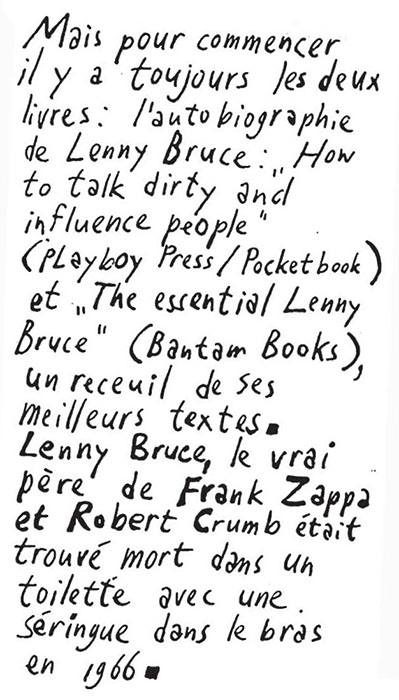 Mais pour commencer
il y a toujours les deux
livres: l'autobiographie
de Lenny Bruce: „How
to talk dirty and
influence people"
(PLayboy Press/Pocketbook)
et „The essential Lenny
Bruce" (Bantam Books),
un receuil de ses
meilleurs textes.
Lenny Bruce, le vrai
père de Frank Zappa
et Robert Crumb était
trouvé mort dans un
toilette avec une
séringue dans le bras
en 1966.